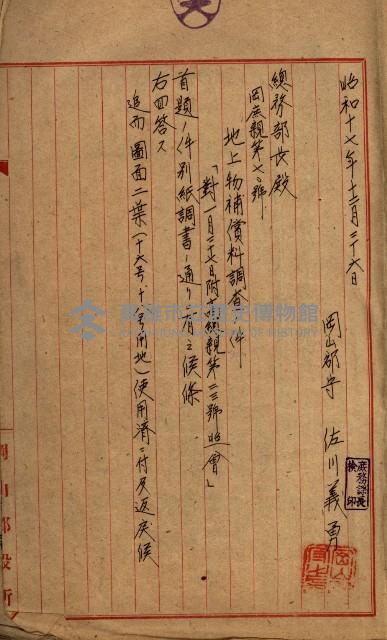 昭和十七年十二月二十六日
岡山郡守 佐川義勇
庶務課長
檢印
總務部長殿
岡庶親第七〇號
地上物補償料調査ノ件
「對一月二十七日附十總親第二三號照會」
首題ノ件別紙調書ノ通リ有之候條
右回答ス
追而圖面二葉(十六号十 用地)使用濟ニ付及返戻候
岡山郡役所
高雄市立歷史博物館
MUSEUM OF HISTORY